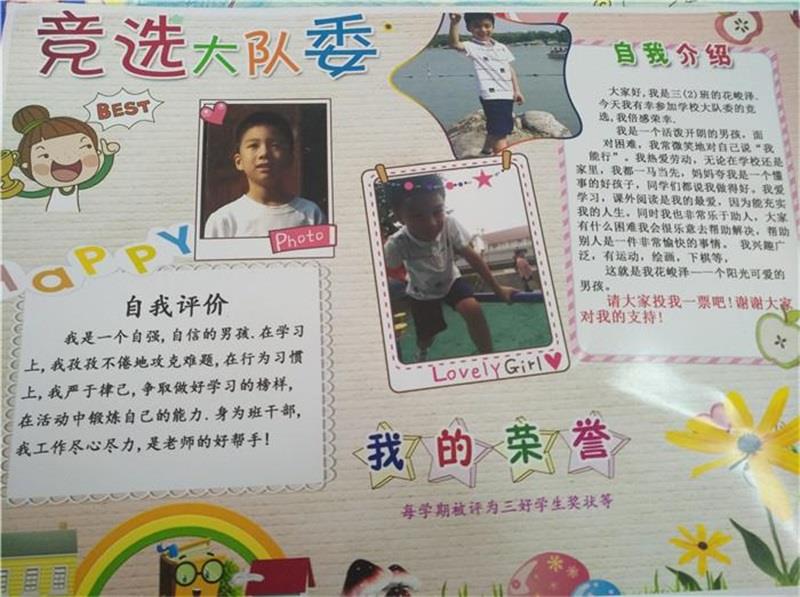 竞选大队委
BEST
Photo
HAPPY
自我评价
我是一个自强,自信的男孩.在学习
上,我孜孜不倦地攻克难题,在行为习惯
上,我严于律己,争取做好学习的榜样,
在活动中锻炼自己的能力.身为班干部,
我工作尽心尽力,是老师的好帮手!
LovelyGirl
自我介绍
大家好,我是三(2)班的花峻泽.
今天我有幸参加学校大队委的竞
选,我倍感荣幸.
我是一个活泼开朗的男孩,面
对困难,我常微笑地对自己说“我
能行”。我热爱劳动,无论在学校还是
家里,我都一马当先,妈妈夸我是一个懂
事的好孩子,同学们都说我做得好。我爱
学习,课外阅读是我的最爱,因为能充实
我的人生。同时我也非常乐于助人,大家
有什么困难我会很乐意去帮助解决,帮助
别人是一件非常愉快的事情,我兴趣广
泛,有运动,绘画,下棋等,
这就是我花峻泽——一个阳光可爱的
男孩。
请大家投我一票吧!谢谢大家
对我的支持!
我的荣誉
每学期被评为三好学生奖状等